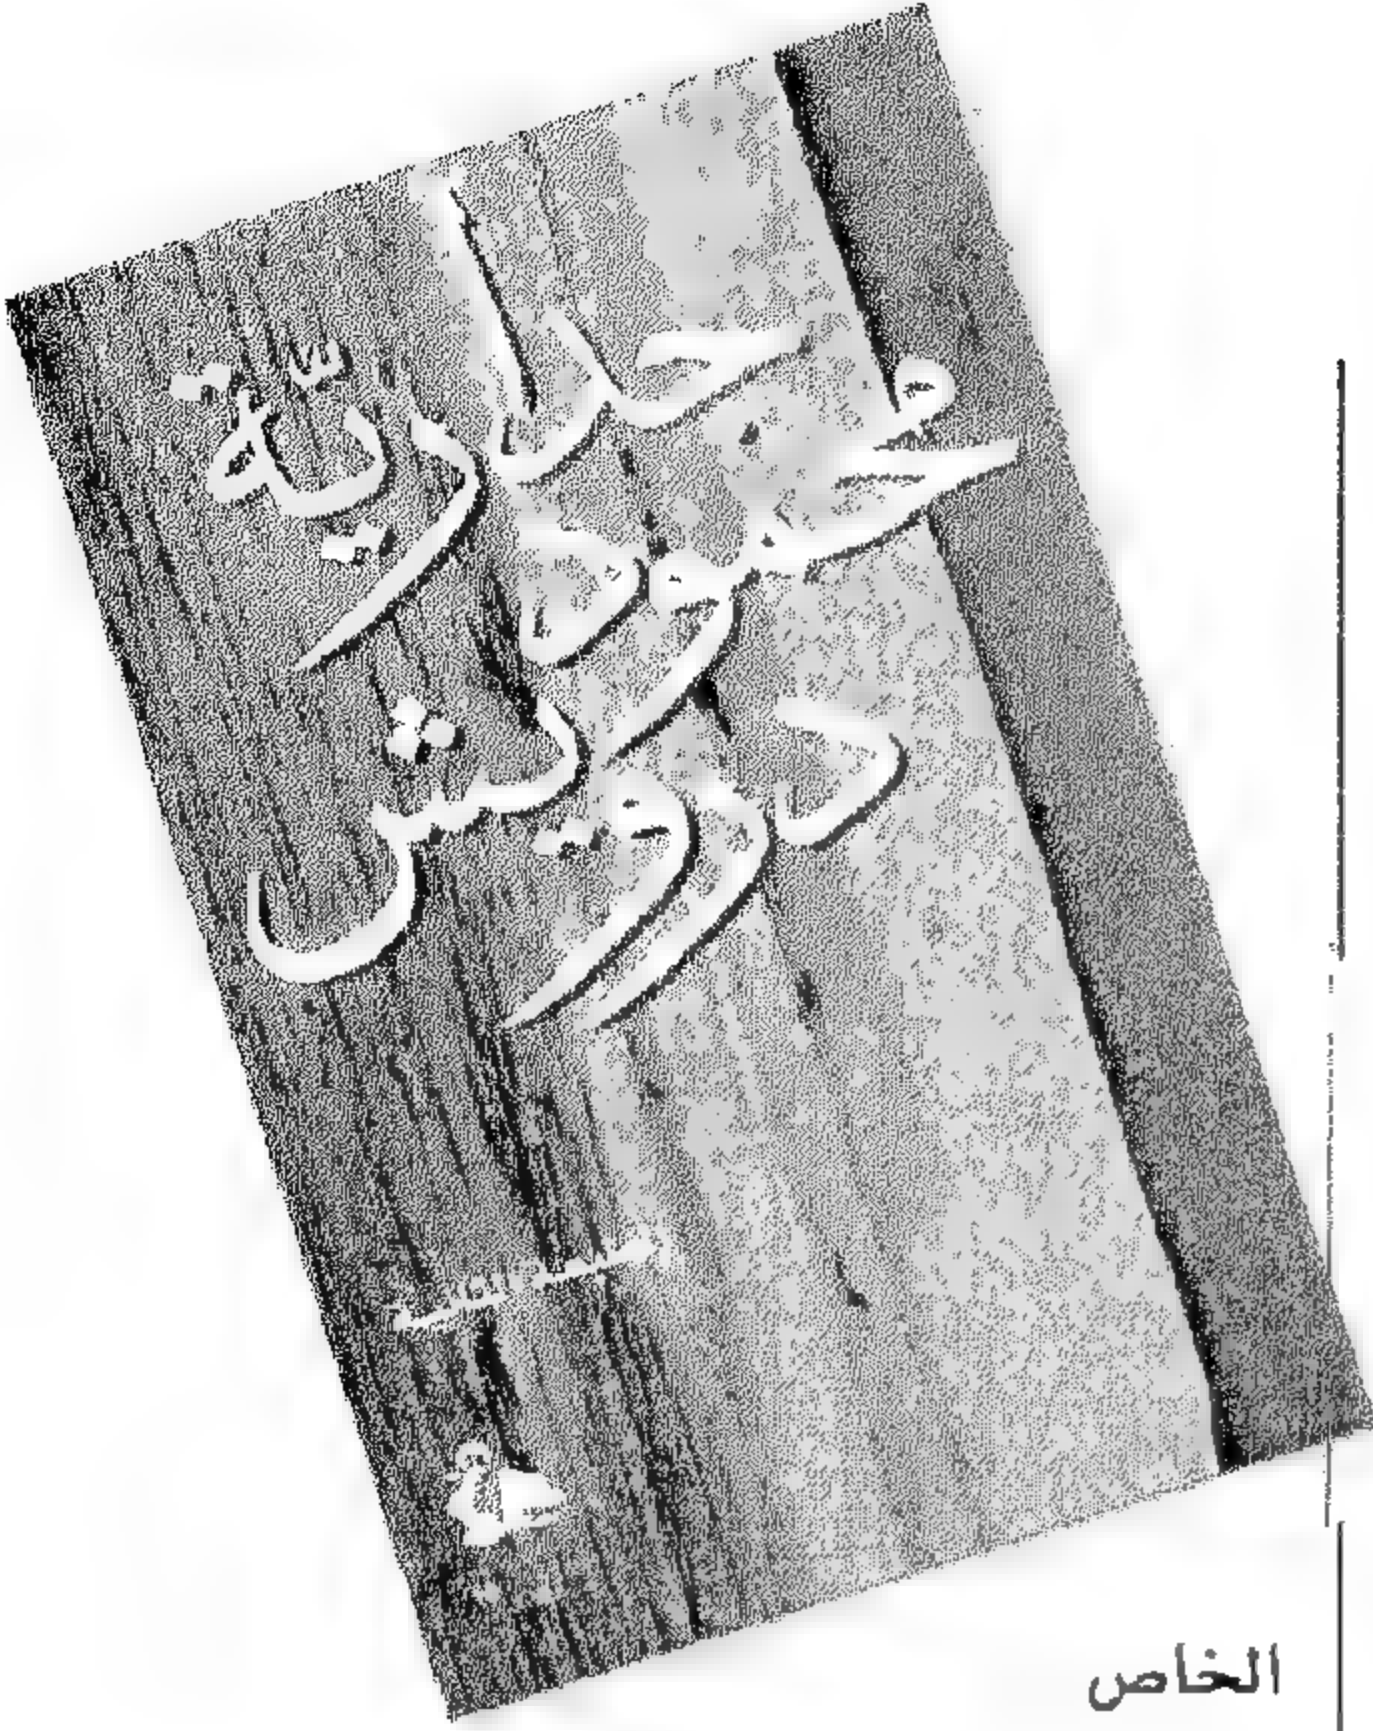 جدارية
محمود
درويش
الخاص